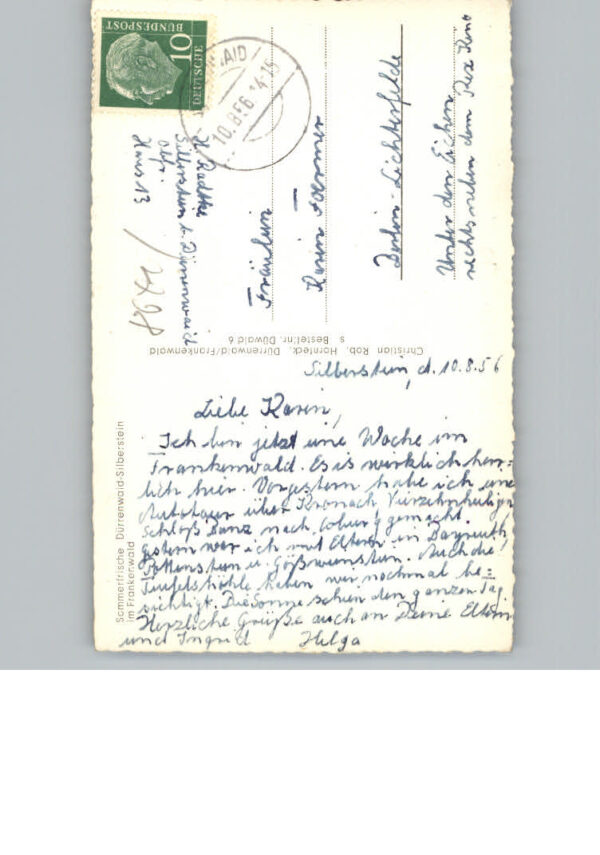 Silberstein, d. 10.8.56
Liebe Karin,
Ich bin jetzt eine Woche im
Frankenwald. Es is wirklich herr=
lich hier. Vorgestern habe ich eine
Autotour über Kronach, Vierzehnheiligen
Schloß Banz nach Coburg gemacht.
gestern war ich mit Eltern in Bayreuth,
Pottenstein u. Gößweinstein. Auch die
Teufelshöhle haben wir nochmal be=
sichtigt. Die Sonne schien den ganzen Tag.
Herzliche Grüße auch an Deine Eltern
und Ingrid Helga
Sommerfrische Dürrenwald-Silberstein
im Frankenwald
Christian Rob. Hornfeck, Dürrenwald/Frankenwald
s. Bestell.nr. Düwald 6
DEUTSCHE
BUNDESPOST
10
10.8.56
H. Radtke
Silberstein b. Dürrenwaid
Ofr.
Haus 13
Fräulein
Karin
Berlin-Lichterfelde
Unter den Eichen
rechts neben dem Rex Kino